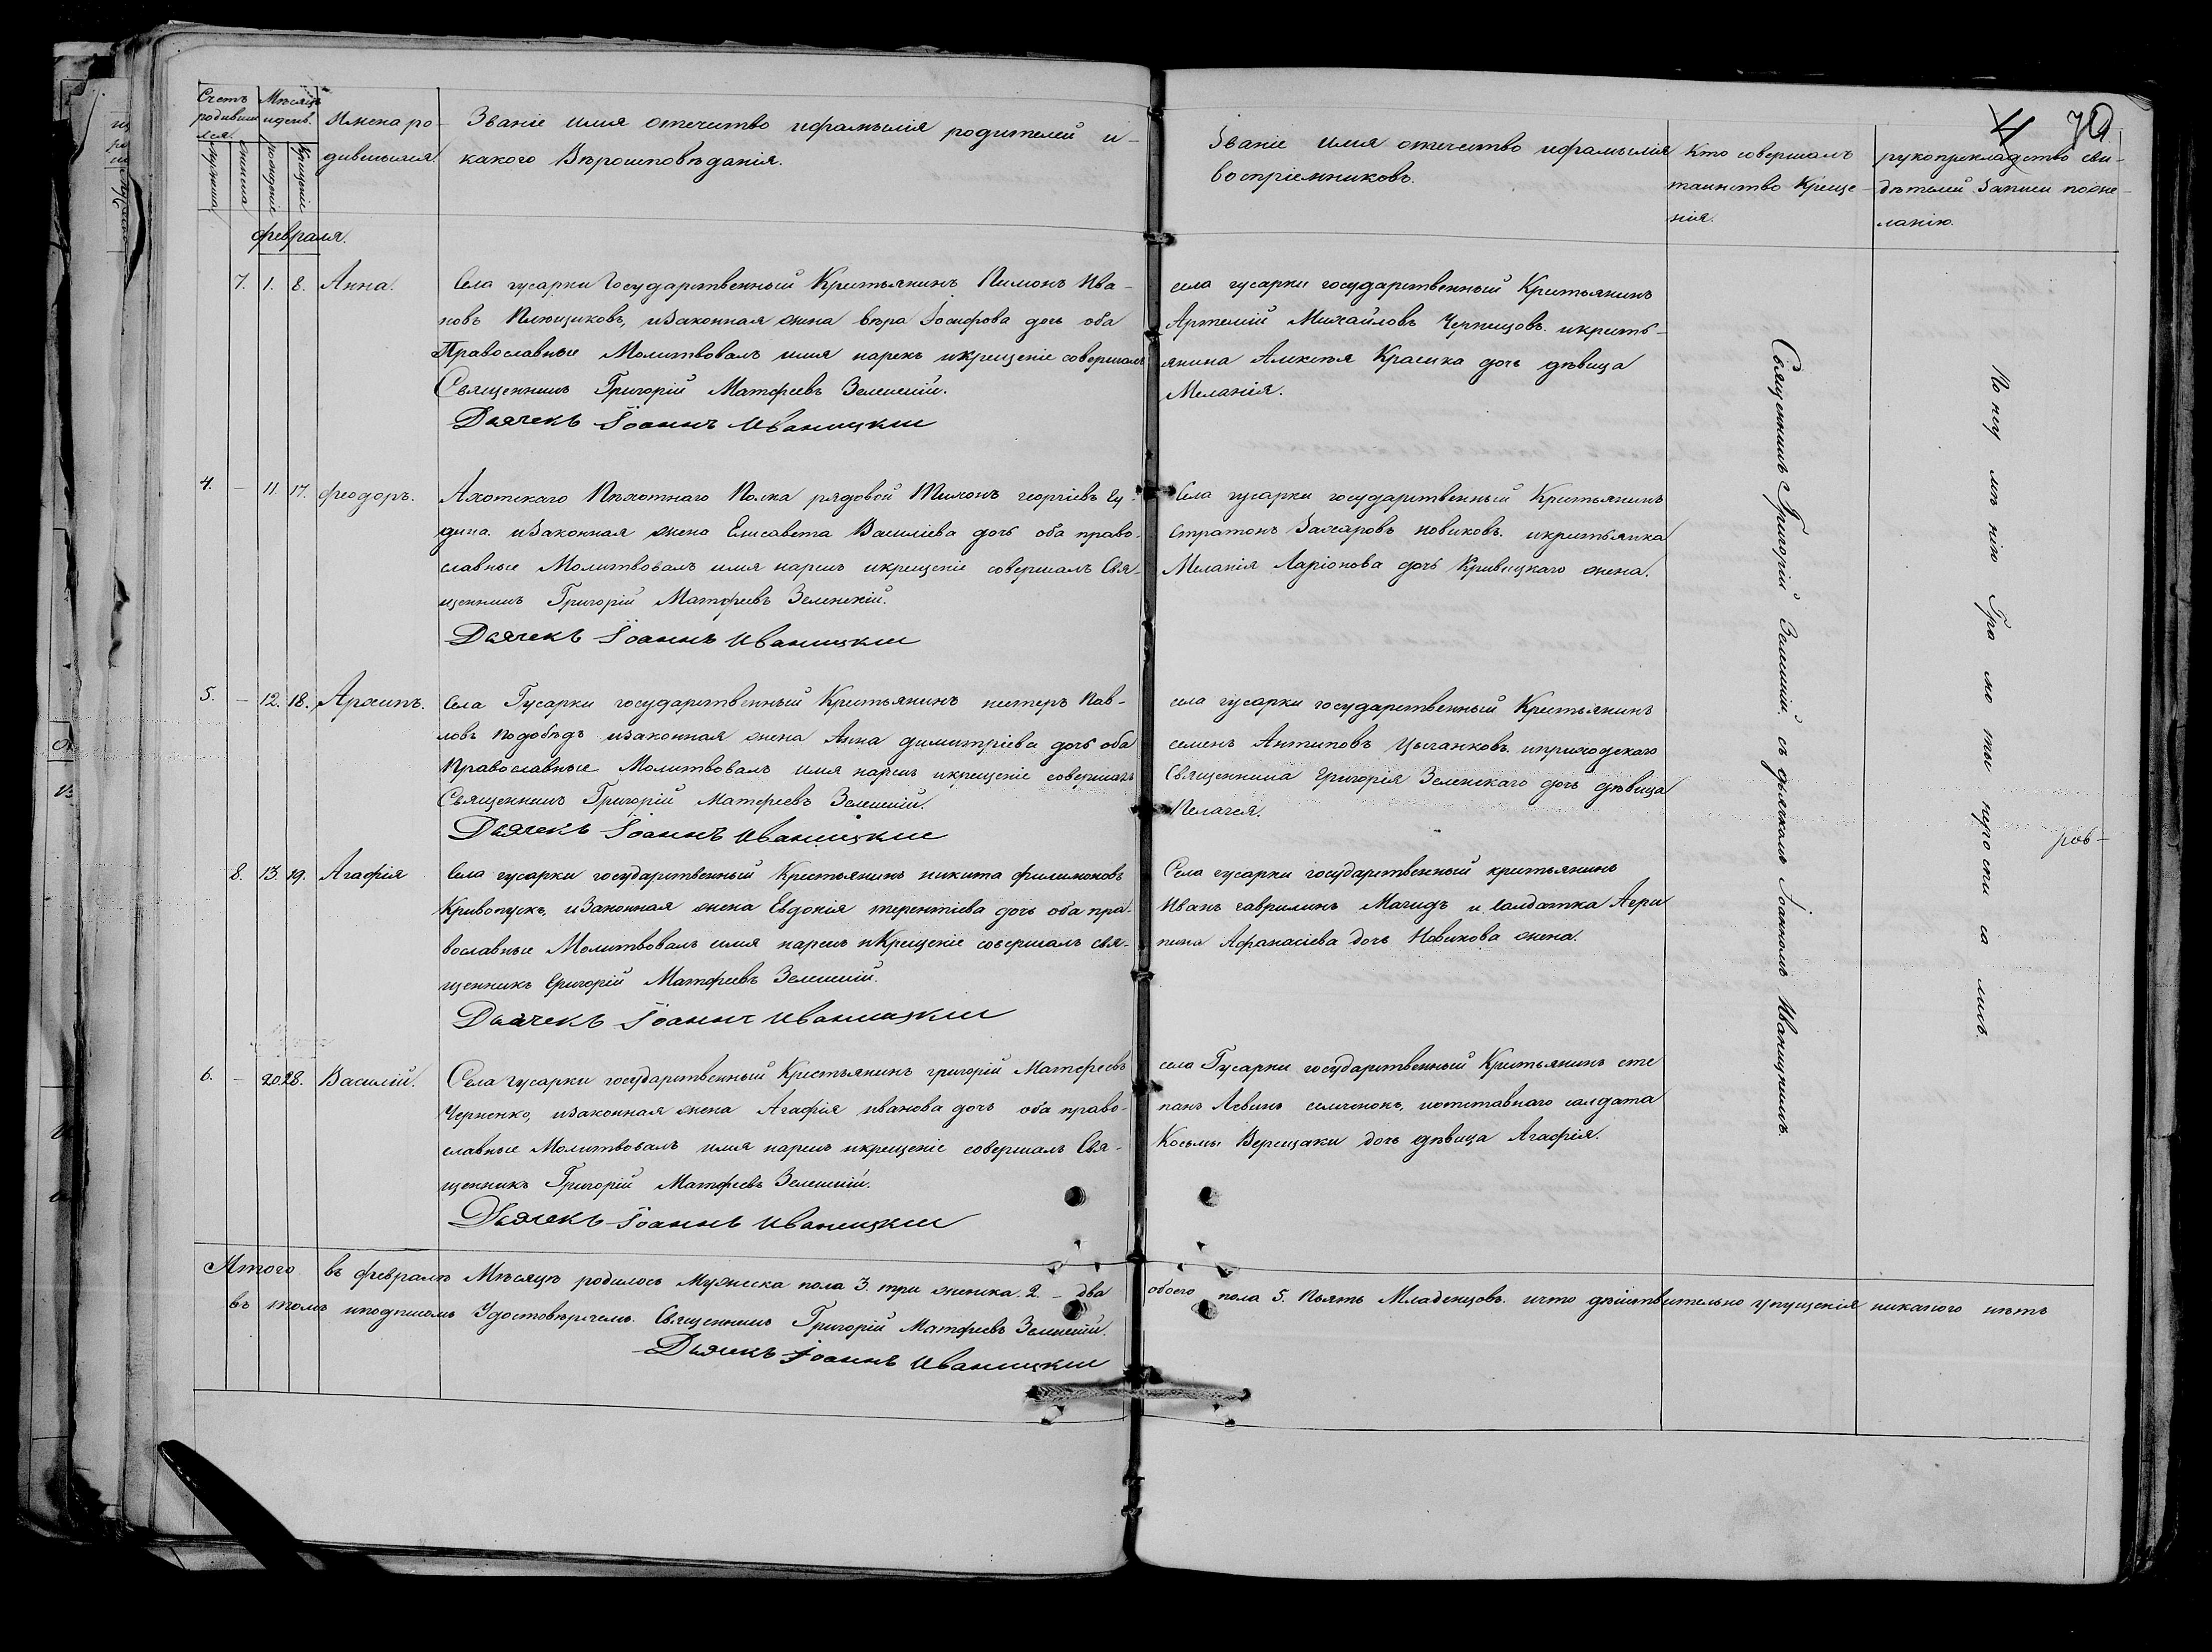 Счетъ родивши
лся.
Мѣсяцъ
и день.
Имена ро-
дившихся.
мужеска
женска
рожденіе
Крещеніе
Званіе имя отечество ифамилія родителей и-
какого Вѣроисповѣданія.
Званіе имя отечество ифамилія
Воспріемниковъ.
Кто совершалъ
таинство Креще-
нія.
рукоприкладство сви-
дѣтелей Записи поже-
ланію.
4
февраля.
7. 1. 8. Анна.
Села гусарки Государственный Крестьянинъ Пимонъ Ива-
новъ Плющиковъ, изаконная жена вѣра Іосифова дочь оба
Православные Молитвовалъ имя нарекъ икрещеніе совершалъ
Священникъ Григорій Матфеевъ Зеленскій.
Дьячекъ Іоаннъ Иваницкій
села гусарки государственный Крестьянинъ
Артемій Михайловъ Чернцовъ икресть-
янина Алексѣя Красика дочь дѣвица
Меланія.
4. – 11. 17. Феодоръ.
Ахотскаго Пѣхотнаго Полка рядовой Тихонъ георгіевъ
изаконная жена Елисавета Василіева дочь оба право-
славные Молитвовалъ имя нарекъ икрещеніе совершалъ Свя-
щенникъ Григорій Матфеевъ Зеленскій.
Дьячекъ Іоаннъ Иваницкій
Села гусарки государственный Крестьянинъ
Стратонъ Захаровъ новиковъ. икрестьянка
Меланія Ларіонова дочь Кривицкаго жена.
5. – 12. 18. Архипъ.
Села Гусарки государственный Крестьянинъ нестеръ Пав-
ловъ Подобѣдъ изаконная жена Анна димитріева дочь оба
Православные Молитвовалъ имя нарекъ икрещеніе совершалъ
Священникъ Григорій Матфеевъ Зеленскій.
Дьячекъ Іоаннъ Иваницкій
села гусарки государственный Крестьянинъ
семенъ Антиповъ Цыганковъ. иприходскаго
Священника Григорія Зеленскаго дочь дѣвица
Пелагея.
8. 13. 19. Агафія
Села гусарки государственный Крестьянинъ никита филимоновъ
Кривопускъ, изаконная жена Евдокія терентіева дочь оба пра-
вославные Молитвовалъ имя нарекъ иКрещеніе совершалъ свя-
щенникъ Григорій Матфеевъ Зеленскій.
Дьячекъ Іоаннъ Иваницкій
Села гусарки государственный крестьянинъ
Иванъ гавриловъ Магидъ и Салдатка Агри
пина Афанасіева дочь Новикова жена.
6. – 20. 28. Василій.
Села гусарки государственный Крестьянинъ григорій Матфеевъ
Черненко, изаконная жена Агафія иванова дочь оба право-
славные Молитвовалъ имя нарекъ икрещеніе совершалъ Свя-
щенникъ Григорій Матфеевъ Зеленскій.
Дьячекъ Іоаннъ Иваницкій
села Гусарки государственный Крестьянинъ сте
панъ Левинъ иотставнаго салдата
Косьмы Верещаки дочь дѣвица Агафія.
Священникъ Григорій Зеленскій. съ дьячкомъ Іоанномъ Иваницкимъ.
По не у мѣ нію Гра мо ты не ро спи са лись.
Итого въ февралѣ Мѣсяцѣ родилось Мужеска пола 3. три женска. 2. – два обоего пола 5. Пьять Младенцовъ. ичто дѣйствительно упущенія никакого нетъ
въ томъ иподписомъ Удостовѣряемъ. Священникъ Григорій Матфеевъ Зеленскій.
Дьячекъ Іоаннъ Иваницкій